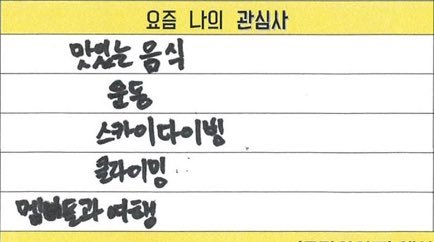 요즘 나의 관심사
맛있는 음식
운동
스카이다이빙
클라이밍
멤버들과 여행